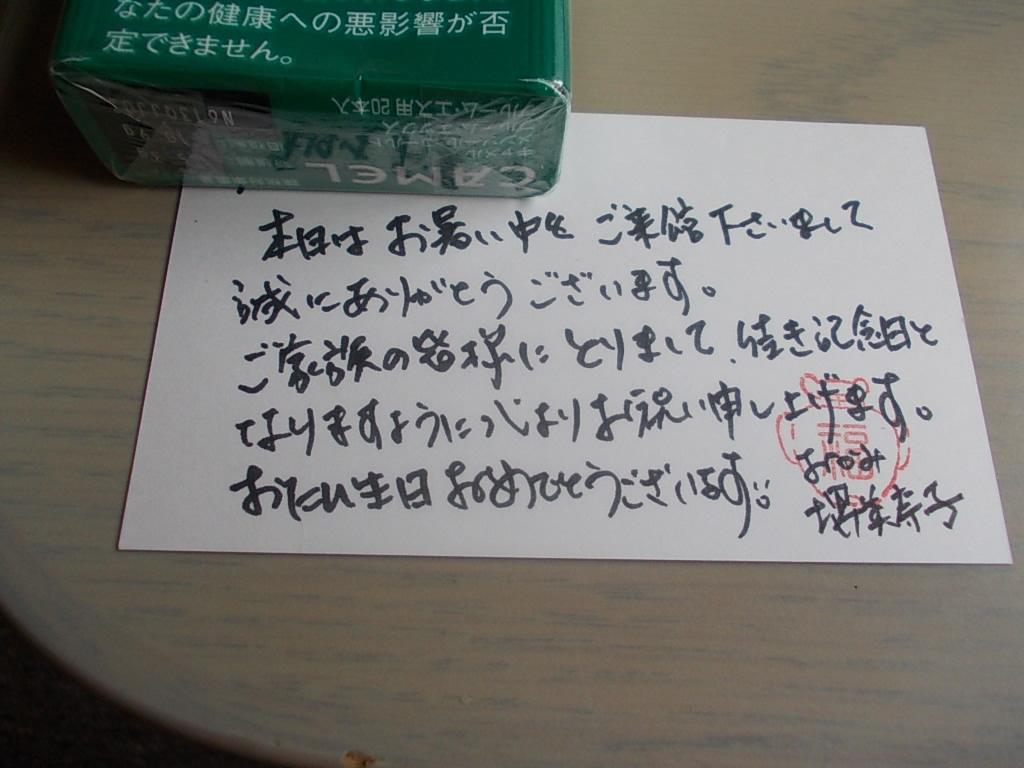 なたの健康への悪影響が否
定できません。
プルーム・エス用20本入
プルーム・エックス
CAMEL
本日はお暑い中を ご来館下さいまして
誠にありがとうございます。
ご家族の皆様にとりまして、佳き記念日と
なりますように心よりお祝い申し上げます。
おたん生日おめでとうございます。
おかみ
福